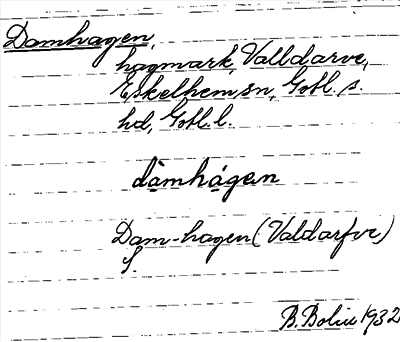 Damhagen,
hagmark, Valldarve,
Eskelhem sn, Gotl. s.
hd, Gotl. l.
dàmhágen
Dam-hagen (Valdarfve)
S.
B. Bolin 1932